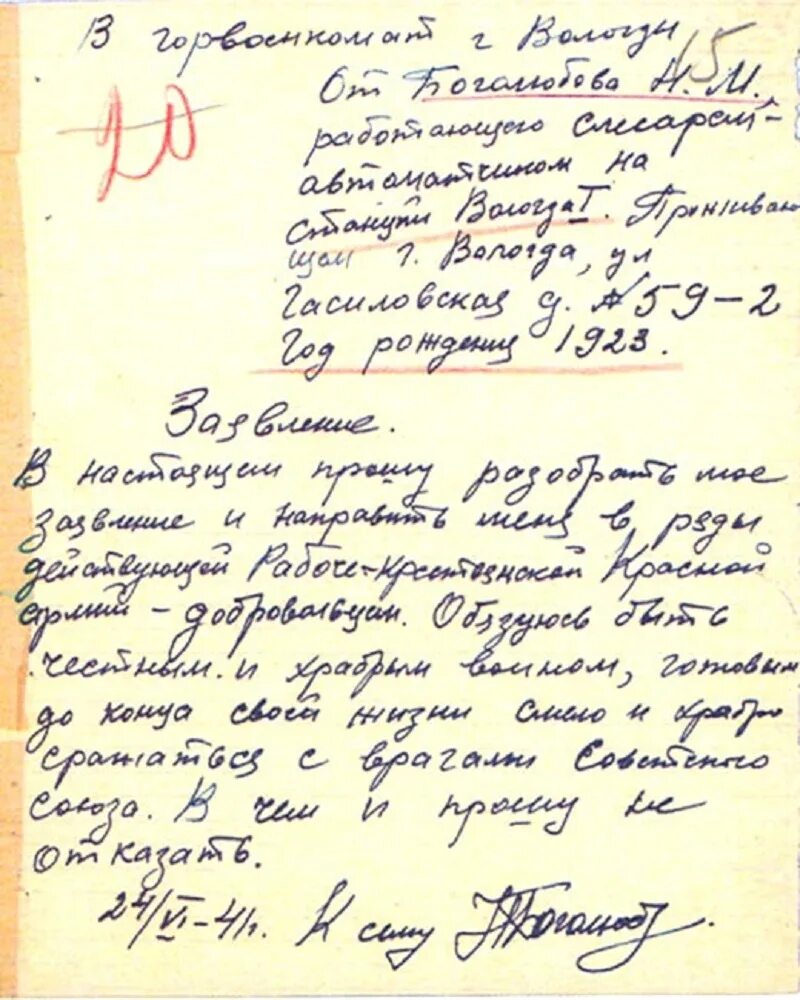 В горвоенкомат г Вологды
15
От Боголюбова Н. М.,
20
работающего слесарем-
автоматчиком на
станции Вологда I. Проживаю
щем г. Вологда, ул
Гасиловская д. № 59-2
Год рождения 1923.
Заявление.
В настоящем прошу разобрать мое
заявление и направить меня в ряды
действующей Рабоче-крестьянской Красной
армии - добровольцем. Обязуюсь быть
честным и храбрым воином, готовым
до конца своей жизни смело и храбро
сражаться с врагами Советского
союза. В чем и прошу не
отказать.
24/VI-41г. К сему НБоголюб